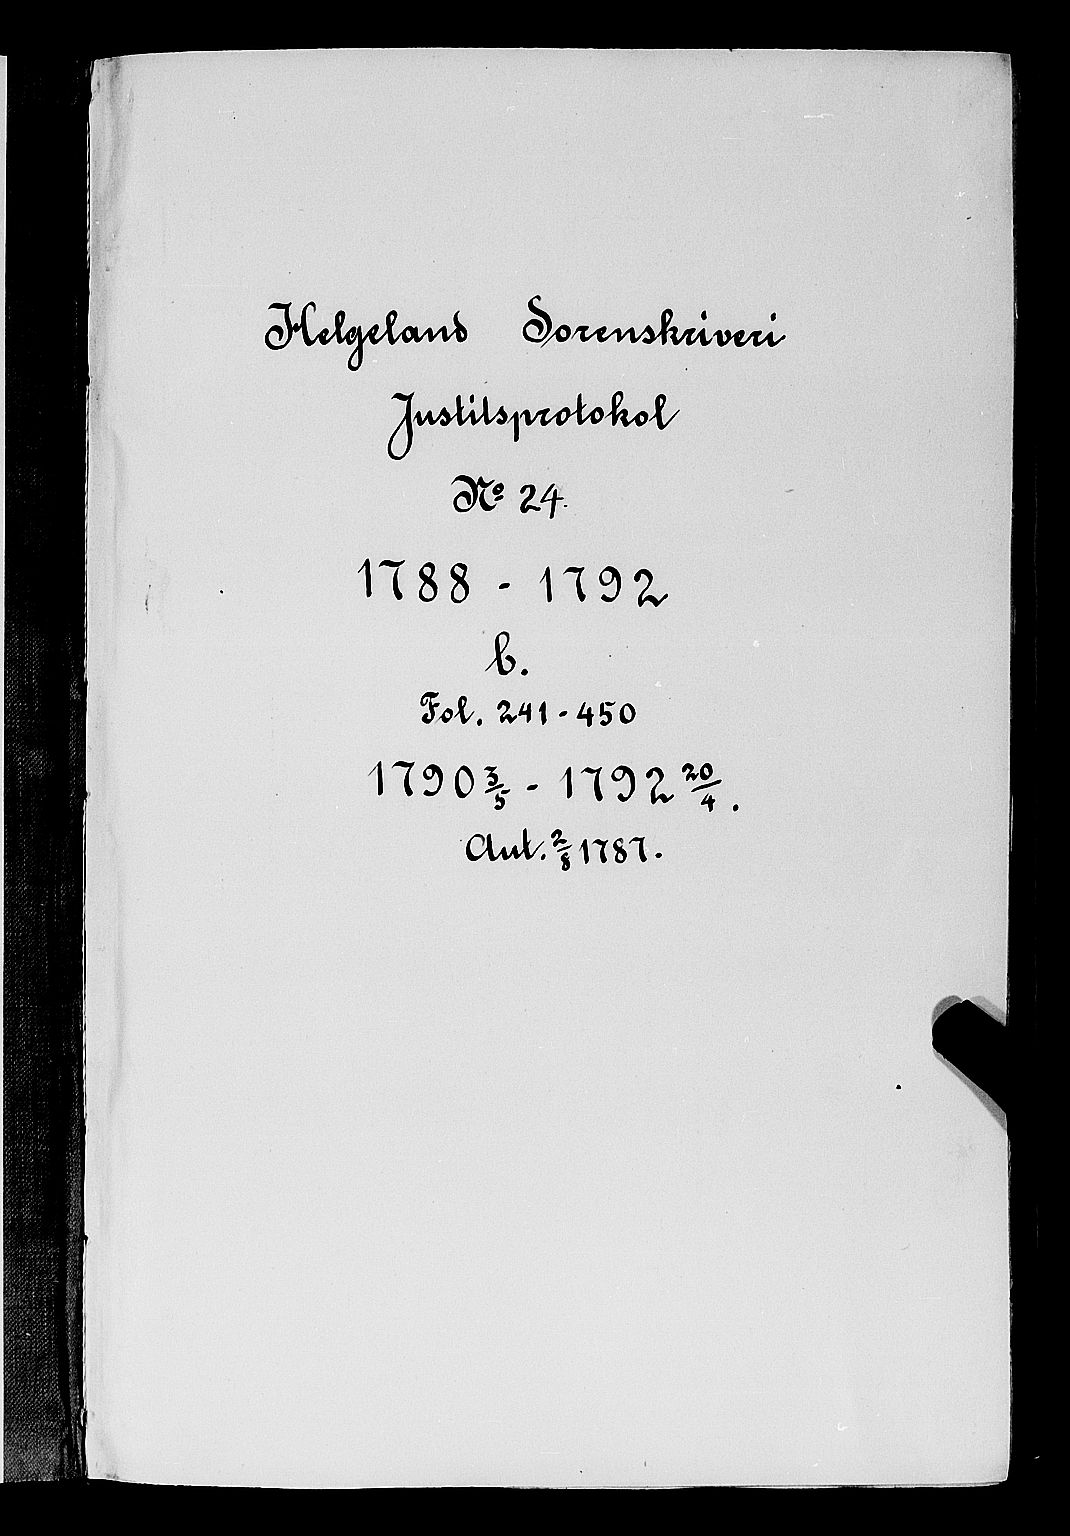 Helgeland Sorenskriveri
Justitsprotokol
Nº 24.
1788 - 1792
b.
Fol. 241-450
1790 3/5 - 1792 20/4.
Aut. 2/8 1787.